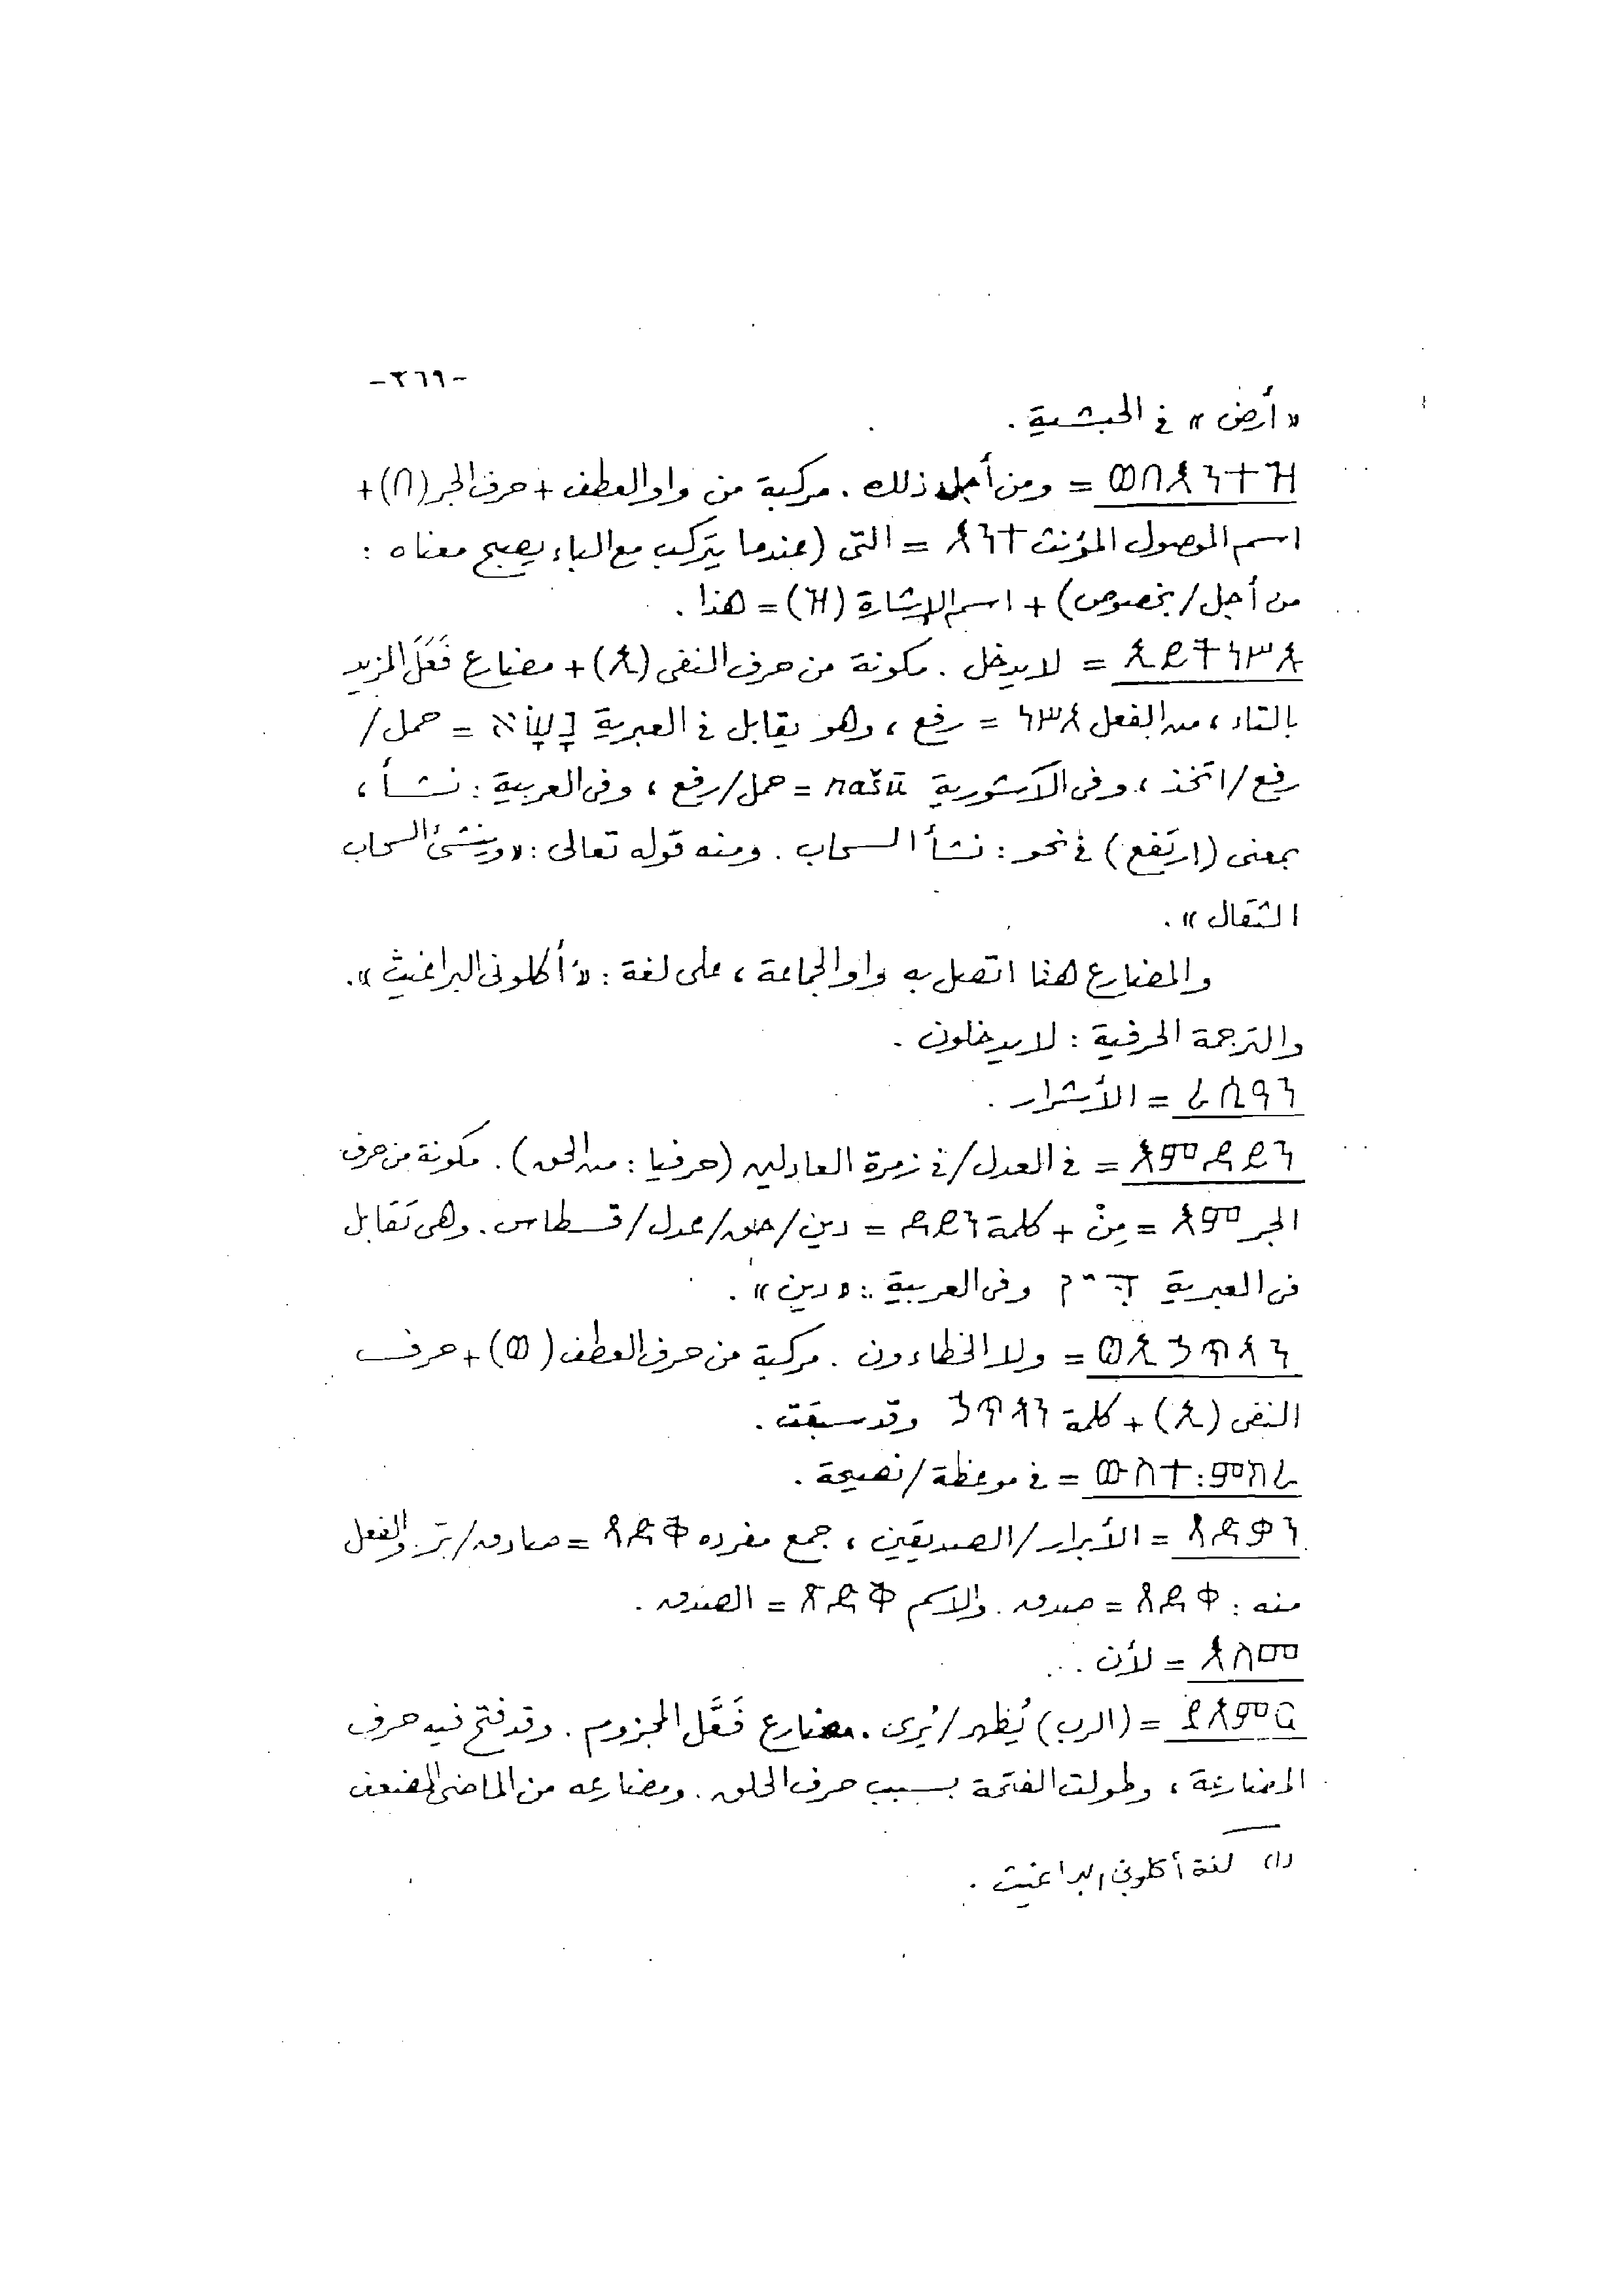 -٣٦٩-
«أرض» في الحبشية .
ወበእንተዝ = ومن أجل ذلك . مركبة من واو العطف + حرف الجر (በ) +
اسم الموصول المؤنث እንተ = التى (عندما يتركب مع الباء يصبح معناه :
من أجل/بخصوص) + اسم الإشارة (ዝ) = هذا .
= لا يدخل . مكونة من حرف النفى (ኢ) + مضارع فَعَلَ المزيد
بالتاء ، من الفعل ንሥአ = رفع ، وهو يقابل في العبرية נָשָׂא = حمل/
رفع/اتخذ ، وفى الآشورية našū = حمل/رفع ، وفى العربية : نشأ ،
بمعنى (ارتفع) في نحو : نشأ السحاب . ومنه قوله تعالى : «وينشئ السحاب
الثقال» .
والمضارع هنا اتصل به واو الجماعة ، على لغة : «أكلونى البراغيث» .
والترجمة الحرفية : لا يدخلون .
= الأشرار .
እምደይን = في العدل/في زمرة العادلين (حرفيا : من الحق) . مكونة من حرف
الجر እም = مِنْ + كلمة ደይን = دين/حق/عدل/قسطاس . وهى تقابل
فى العبرية דִּין وفى العربية : «دين» .
ወኢኃጥኣን = ولا الخطاءون . مركبة من حرف العطف (ወ) + حرف
النفى (ኢ) + كلمة ኃጥኣን وقد سبقت .
= في موعظة/نصيحة .
ጻድቃን = الأبرار/الصديقين ، جمع مفرده ጻድቅ = صادق/بَرّ . والفعل
منه : ጸድቀ = صدق . والاسم ጽድቅ = الصدق .
እስመ = لأن ..
= (الرب) يُظهر/يُرى . مضارع فَعَّلَ المجزوم . وقد فتح فيه حرف
المضارعة ، وطولت الفتحة بسبب حرف الحلق . ومضارعه من الماضى المضعف
(١) لغة أكلونى البراغيث .